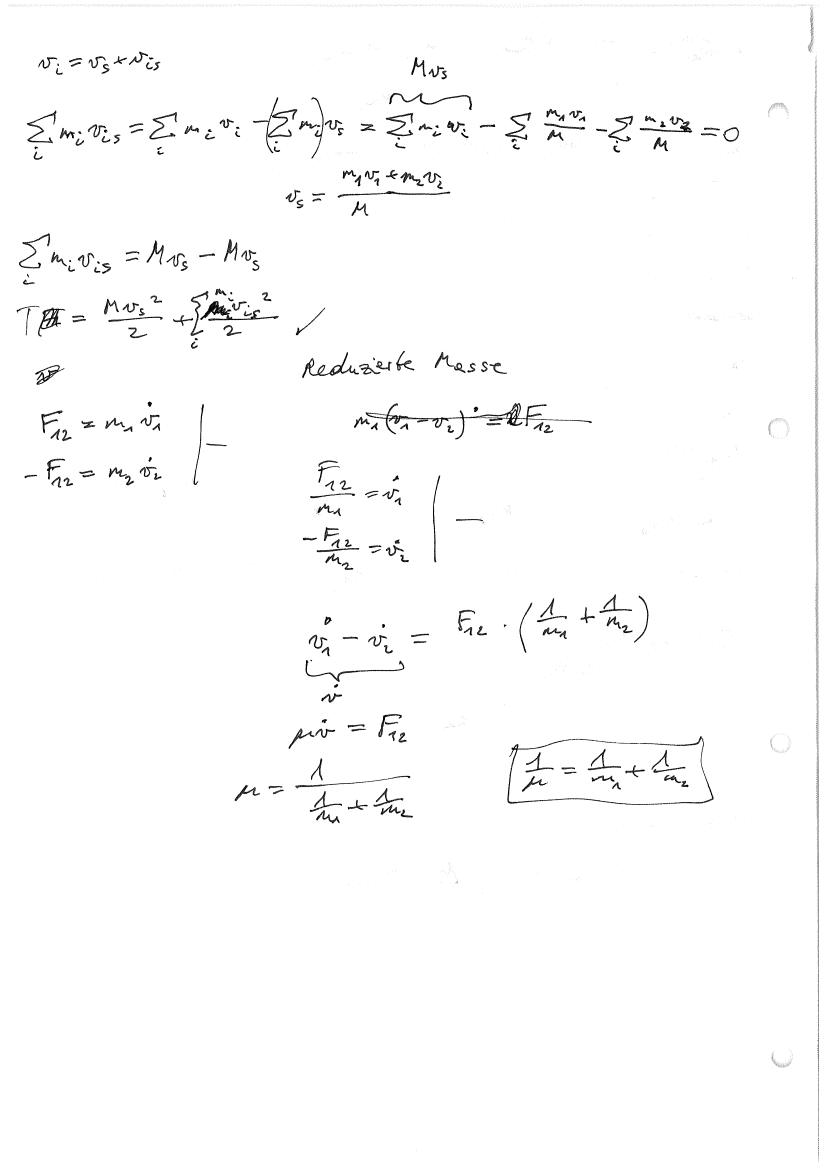 v_i = v_s + v_is
Mv_s
∑_i m_i v_is = ∑_i m_i v_i − (∑_i m_i) v_s = ∑_i m_i v_i − ∑_i m_1 v_1 / M − ∑_i m_2 v_2 / M = 0
v_s = (m_1 v_1 + m_2 v_2) / M
∑_i m_i v_is = M v_s − M v_s
T = M v_s² / 2 + ∑_i m_i v_is² / 2 ✓
Reduzierte Masse
F_12 = m_1 v̇_1 | −
− F_12 = m_2 v̇_2
m_1 (v_1 − v_2)˙ = F_12
F_12 / m_1 = v̇_1 | −
− F_12 / m_2 = v̇_2
v̇_1 − v̇_2 = F_12 · (1/m_1 + 1/m_2)
v̇
μ v̇ = F_12
μ = 1 / (1/m_1 + 1/m_2)
1/μ = 1/m_1 + 1/m_2